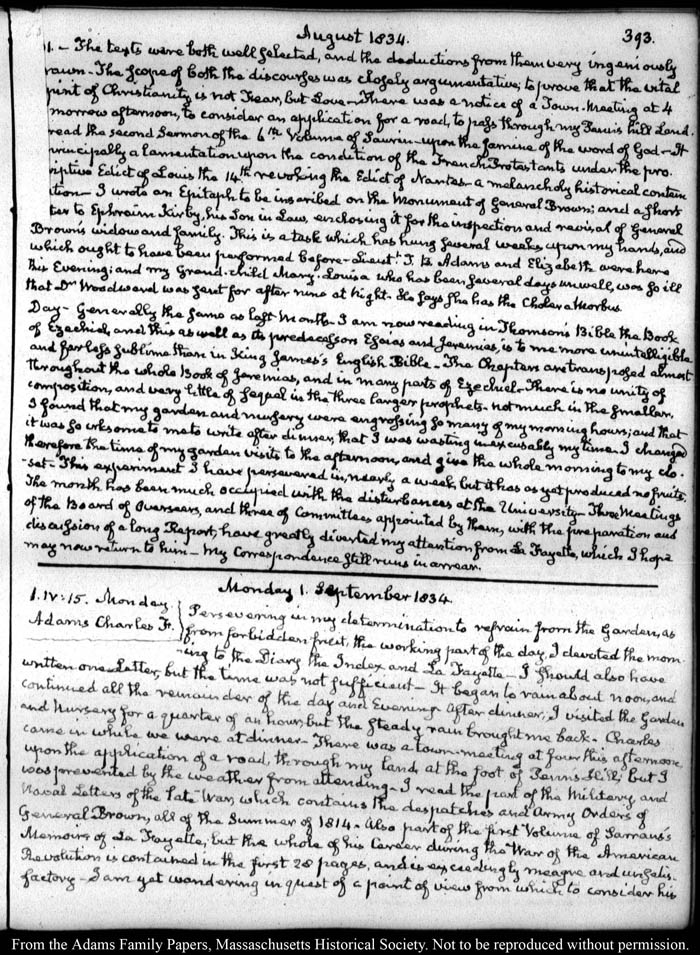 August 1834.
393.
31. – The texts were both well selected, and the deductions from them very ingeniously
drawn – The scope of both the discourses was closely argumentative, to prove that the vital
point of Christianity is not Fear, but Love – There was a notice of a Town-Meeting at 4
morrow afternoon, to consider an application for a road, to pass through my Penn's hill Land.
read the second Sermon of the 6th Volume of Saurin – upon the famine of the word of God – It
principally a lamentation upon the condition of the French Protestants under the pro.
criptive Edict of Louis the 14th revoking the Edict of Nantes – a melancholy historical contem
tion – I wrote an Epitaph to be inscribed on the Monument of General Brown; and a short
ter to Ephraim Kirby, his Son in Law, enclosing it for the inspection and revisal of General
Brown's widow and family. This is a task which has hung several weeks upon my hands, and
which ought to have been performed before – Lieutt. J. H. Adams and Elizabeth were here
this Evening; and my Grand-child Mary-Louisa who has been several days unwell, was so ill
that Dr Woodward was sent for after nine at Night. He says she has the Cholera Morbus.
Day – Generally the same as last Month – I am now reading in Thomson's Bible the Book
of Ezechiel, and this as well as its predecessors Esaias and Jeremias, is to me more unintelligible
and far less sublime than in King James's English Bible – The Chapters are transposed almost
throughout the whole Book of Jeremias, and in many parts of Ezechiel – There is no unity of
composition, and very little of sequel in the three larger prophets – not much in the smaller.
I found that my garden and nursery were engrossing so many of my morning hours; and that
it was so irksome to me to write after dinner, that I was wasting inexcusably my time. I changed
therefore the time of my garden visits to the afternoon, and give the whole morning to my clo-
-set – This experiment I have persevered in, nearly a week, but it has as yet produced no fruits.
The month has been much occupied with the disturbances at the University – Three Meetings
of the Board of Overseers, and three of Committees appointed by them, with the preparation and
discussion of a long Report, have greatly diverted my attention from La Fayette, which I hope
may now return to him – My Correspondence still runs in arrear.
Monday 1. September 1834.
1. IV: 15. Monday.
Adams Charles F.
Persevering in my determination to refrain from the Garden, as
from forbidden fruit, the working part of the day, I devoted the morn
-ing to the Diary the Index and La Fayette – I should also have
written one Letter, but the time was not sufficient – It began to rain about noon, and
continued all the remainder of the day and Evening – After dinner, I visited the Garden
and Nursery for a quarter of an hour, but the steady rain brought me back – Charles
came in while we were at dinner – There was a town-meeting at four this afternoon,
upon the application of a road, through my land, at the foot of Penn's Hill; but I
was prevented by the weather from attending – I read the part of the Military and
Naval Letters of the late War, which contains the despatches and Army Orders of
General Brown, all of the Summer of 1814 – Also part of the first Volume of Sarrans's
Memoirs of La Fayette, but the whole of his Career during the War of the American
Revolution is contained in the first 28 pages, and is exceedingly meagre and unsatis-
factory – I am yet wandering in quest of a point of view from which to consider his
From the Adams Family Papers, Massachusetts Historical Society. Not to be reproduced without permission.